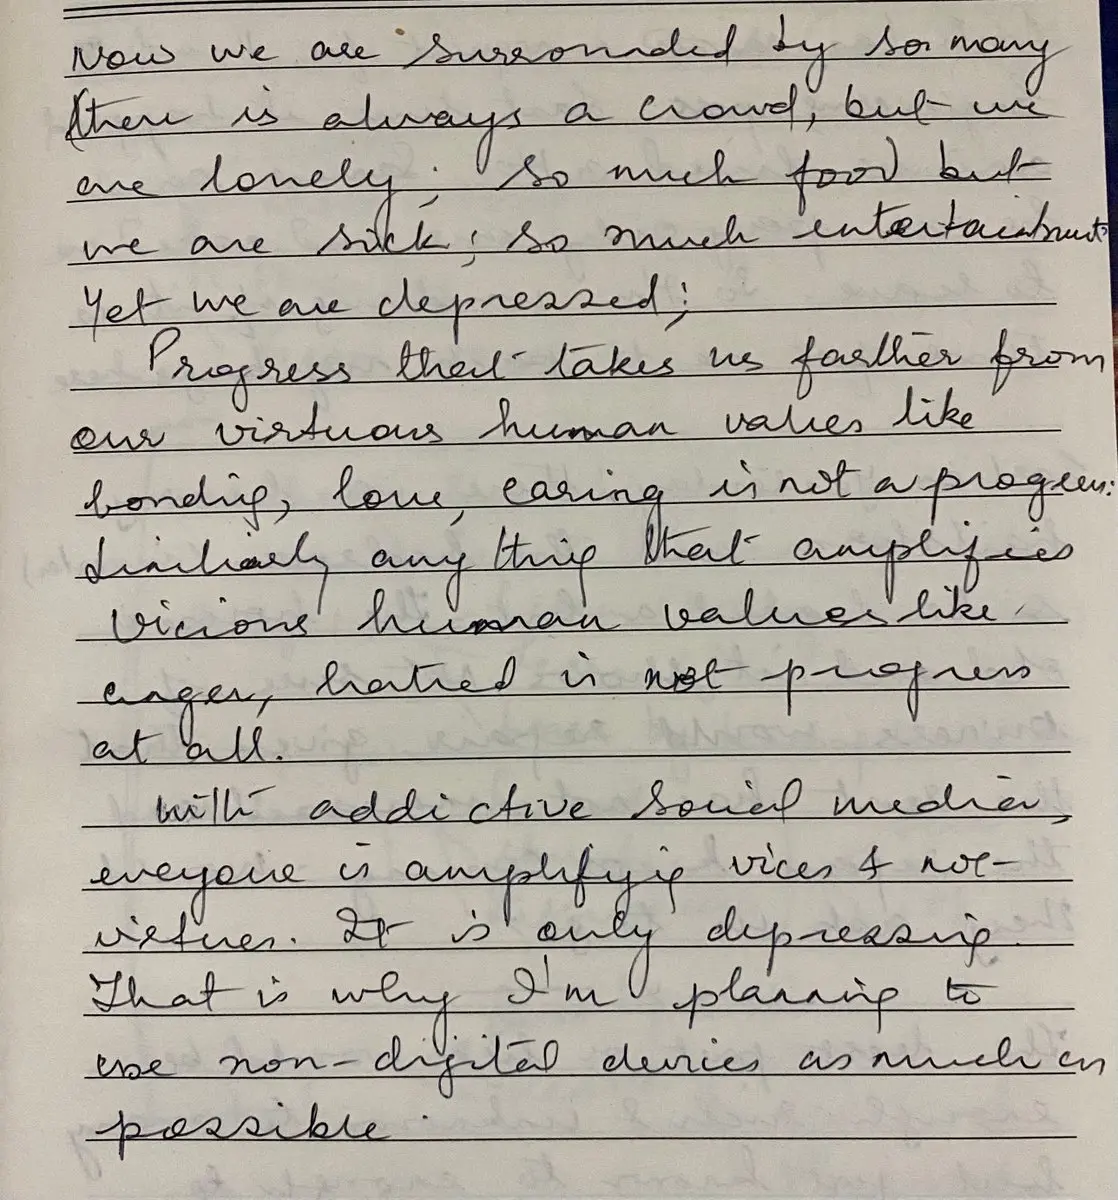 Now we are surrounded by so many
there is always a crowd, but we
are lonely; so much food but
we are sick; so much entertainment
Yet we are depressed;
Progress that takes us farther from
our virtuous human values like
bonding, love, caring is not a progress.
Similarly any thing that amplifies
vicious human values like
anger, hatred is not progress
at all.
With addictive social media,
everyone is amplifying vices & not
virtues. It is only depressing.
That is why I'm planning to
use non-digital devices as much as
possible.